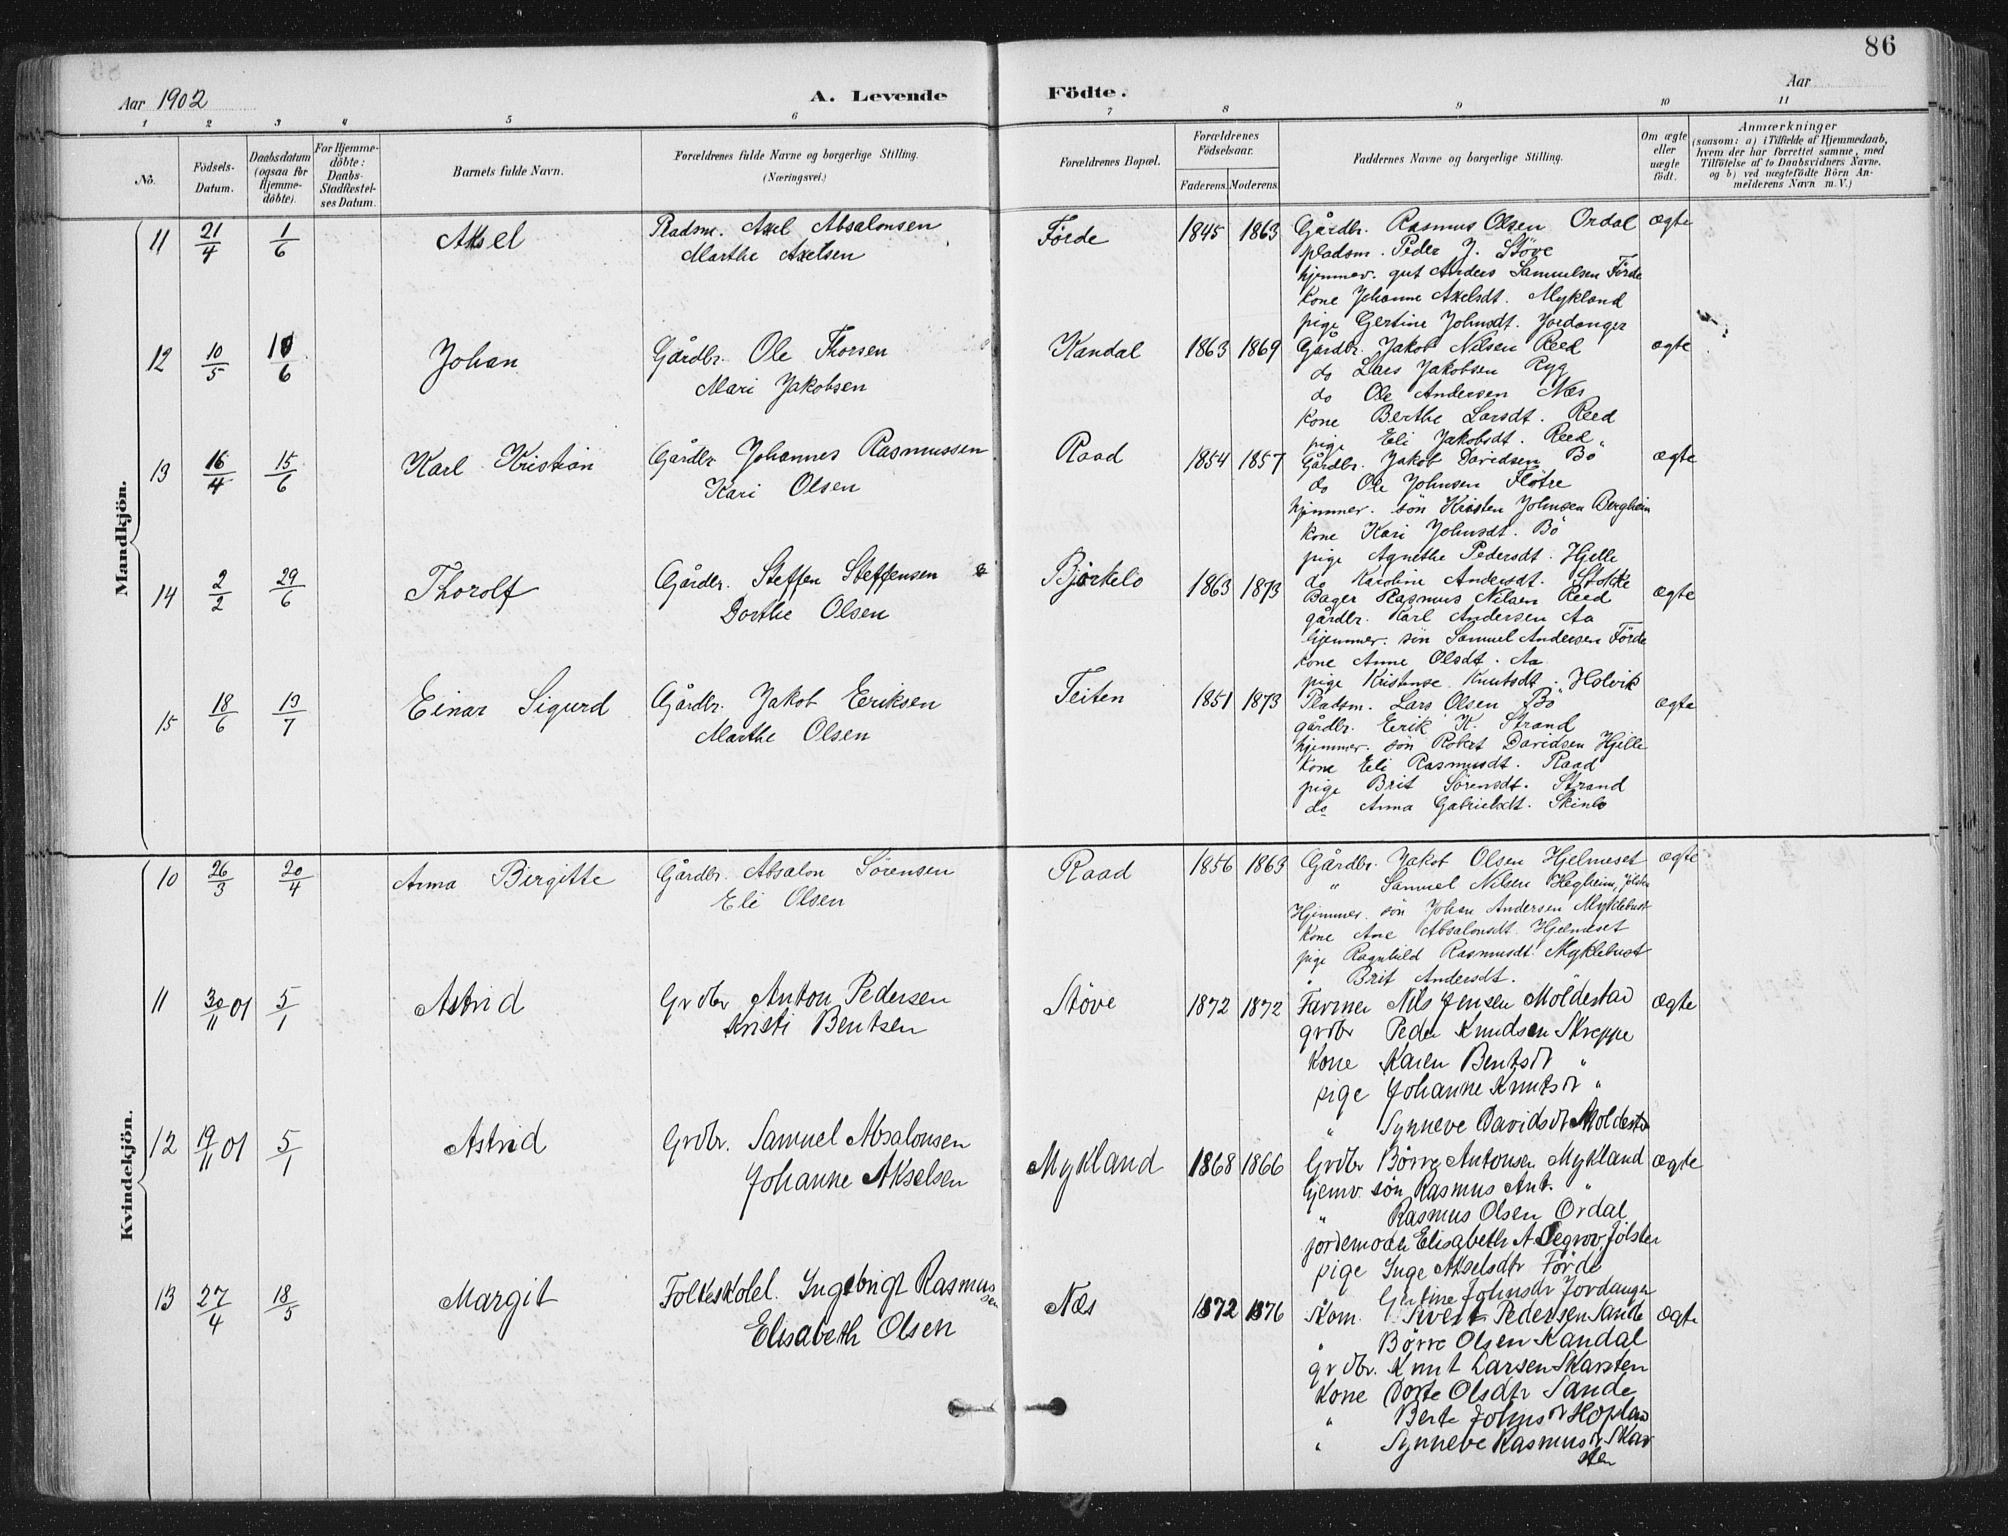 86
Aar 1902
A. Levende
Födte.
Aar
1 2 3 4 5 6 7 8 9 10 11
No.
Födsels-Datum.
Daabsdatum (ogsaa for Hjemme-döbte).
For Hjemme-döbte: Daabs-Stadfæstel-ses Datum.
Barnets fulde Navn.
Forældrenes fulde Navne og borgerlige Stilling.
(Næringsvei.)
Forældrenes Bopæl.
Forældrenes Födselsaar.
Faderens. Moderens.
Faddernes Navne og borgerlige Stilling.
Om ægte eller uægte födt.
Anmærkninger
(saasom: a) i Tilfælde af Hjemmedaab,
hvem der har forrettet samme, med
Tilföielse af to Daabsvidners Navne.
og b) ved uægtefödte Börn An-
melderens Navn m. V.)
Mandkjön.
11 21/4 1/6 Aksel Pladsm. Axel Absalonsen Förde 1845 1863 Gårdbr. Rasmus Olsen Ordal ægte
Marthe Axelsen pladsm. Peder J. Støve
hjemmev. gut Anders Samuelsen Förde
kone Johanne Axelsdt. Mykland
pige Gertine Johnsdt. Jordanger
12 10/5 /6 Johan Gårdbr. Ole Thorsen Kandal 1863 1869 Gårdbr. Jakob Nilsen Reed ægte
Mari Jakobsen do Lars Jakobsen Ryg
do Ole Andersen Næs
kone Berthe Larsdt. Reed
pige Eli Jakobsdt. Reed
13 16/4 15/6 Karl Kristian Gårdbr. Johannes Rasmussen Raad 1854 1857 Gårdbr. Jakob Davidsen Bö ægte
Kari Olsen do Ole Johnsen Flötre
hjemmev. sön Kristen Johnsen Bergheim
kone Kari Johnsdt. Bö
pige Agnethe Pedersdt. Hjelle
do Karoline Andersdt. Stokke
14 2/2 29/6 Thorolf Gårdbr. Steffen Steffensen Bjørkelo 1863 1873 Bager Rasmus Nilsen Reed ægte
Dorthe Olsen gårdbr. Karl Andersen Aa
hjemmev. sön Samuel Andersen Förde
kone Anne Olsdt. Aa
pige Kristense Knutsdt. Holvik
15 18/6 13/7 Einar Sigurd Gårdbr. Jakob Eriksen Teiten 1851 1873 Pladsm. Lars Olsen Bö ægte
Marthe Olsen gårdbr. Eerik K. Strand
hjemmev. sön Robert Davidsen Hjelle
kone Eli Rasmusdt. Raad
pige Brit Sörensdt. Strand
do Anna Gabrielsdt. Skinlo
Kvindekjön.
10 26/3 20/4 Anna Birgitte Gårdbr. Absalon Sörensen Raad 1856 1863 Gårdbr. Jakob Olsen Hjelmeset ægte
Eli Olsen " Samuel Nilsen Hegheim, Jölster
Hjemmev. sön Johan Andersen Myklebust
kone Ane Absalonsdt. Hjelmeset
pige Ragnhild Rasmusdt. Myklebust
" Brit Andersdt.
11 30/11 01 5/1 Astrid Grdbr Anton Pedersen Støve 1872 1872 Farver Nils Jensen Moldestad ægte
Kristi Bentsen grdbr Peder Knudsen Skreppe
kone Karen Bentsdr "
pige Johanne Knutsdr "
" Synneve Davidsdr Moldestad
12 19/11 01 5/1 Astrid Grdbr. Samuel Absalonsen Mykland 1868 1866 Grdbr Børre Antonsen Mykland ægte
Johanne Akselsen hjemv. sön Rasmus Ant. "
" Rasmus Olsen Ordal
jordemoder Elisabeth A Degrov, Jölster
pige Inge Akselsdtr Förde
Gertine Johnsdr Jordanger
13 27/4 18/5 Margit Folkeskolel. Ingebrigt Rasmussen Næs 1872 1876 Skom. Sivert Pedersen Sande ægte
Elisabeth Olsen " Børre Olsen Kandal
grdbr. Knut Larsen Skarsten
kone Dorte Olsdtr Sande
" Berte Johnsdr Hopland
" Synneve Rasmusdr Skarsten